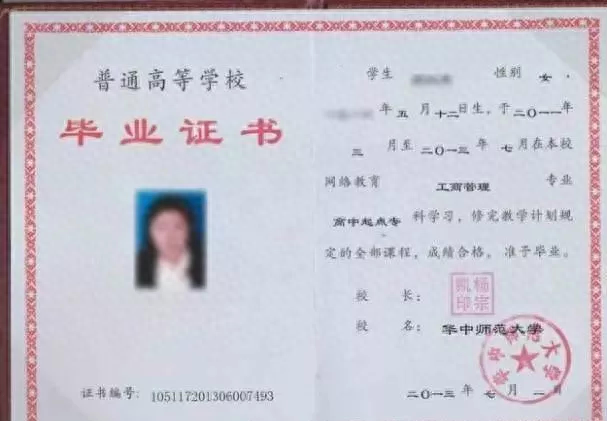 普通高等学校
毕业证书
证书编号: 105117201306007493
学生 性别 女,
年五月十二日生, 于二〇一一年
三月至二〇一三年七月在本校
网络教育 工商管理 专业
高中起点专科学习, 修完教学计划规
定的全部课程, 成绩合格, 准予毕业。
校长: 杨宗凯印
校名: 华中师范大学
华中师范大学
二〇一三年七月一日